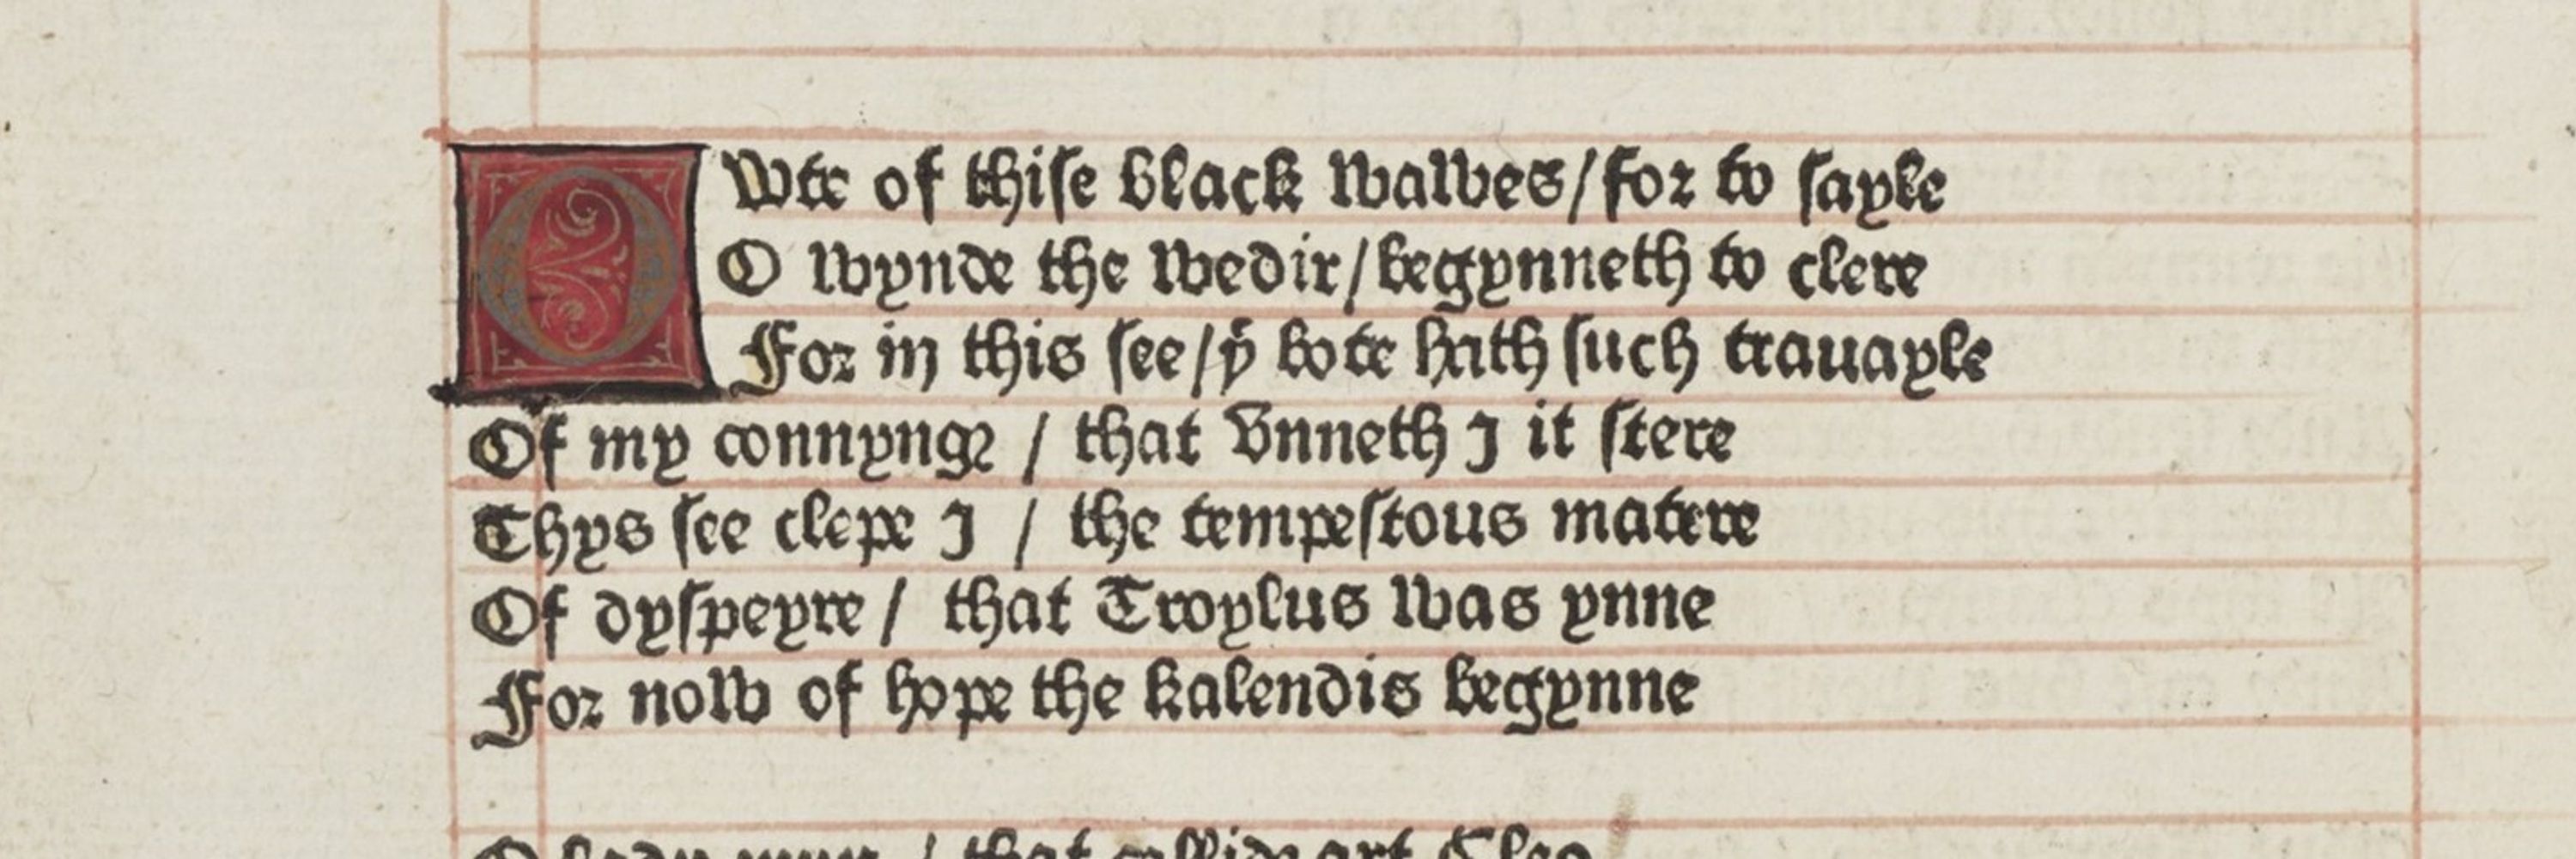 OWte of thiſe black wawes/for to ſayle
O wynde the wedir/begynneth to clere
For in this ſee/yͭ bote hath ſuch trauayle
Of my connyngꝛ / that vnneth J it ſtere
Thys ſee clepe J / the tempeſtous matere
Of dyſpeyre / that Troylus was ynne
For now of hope the kalendis begynne
O lady myn / that callid art Cleo